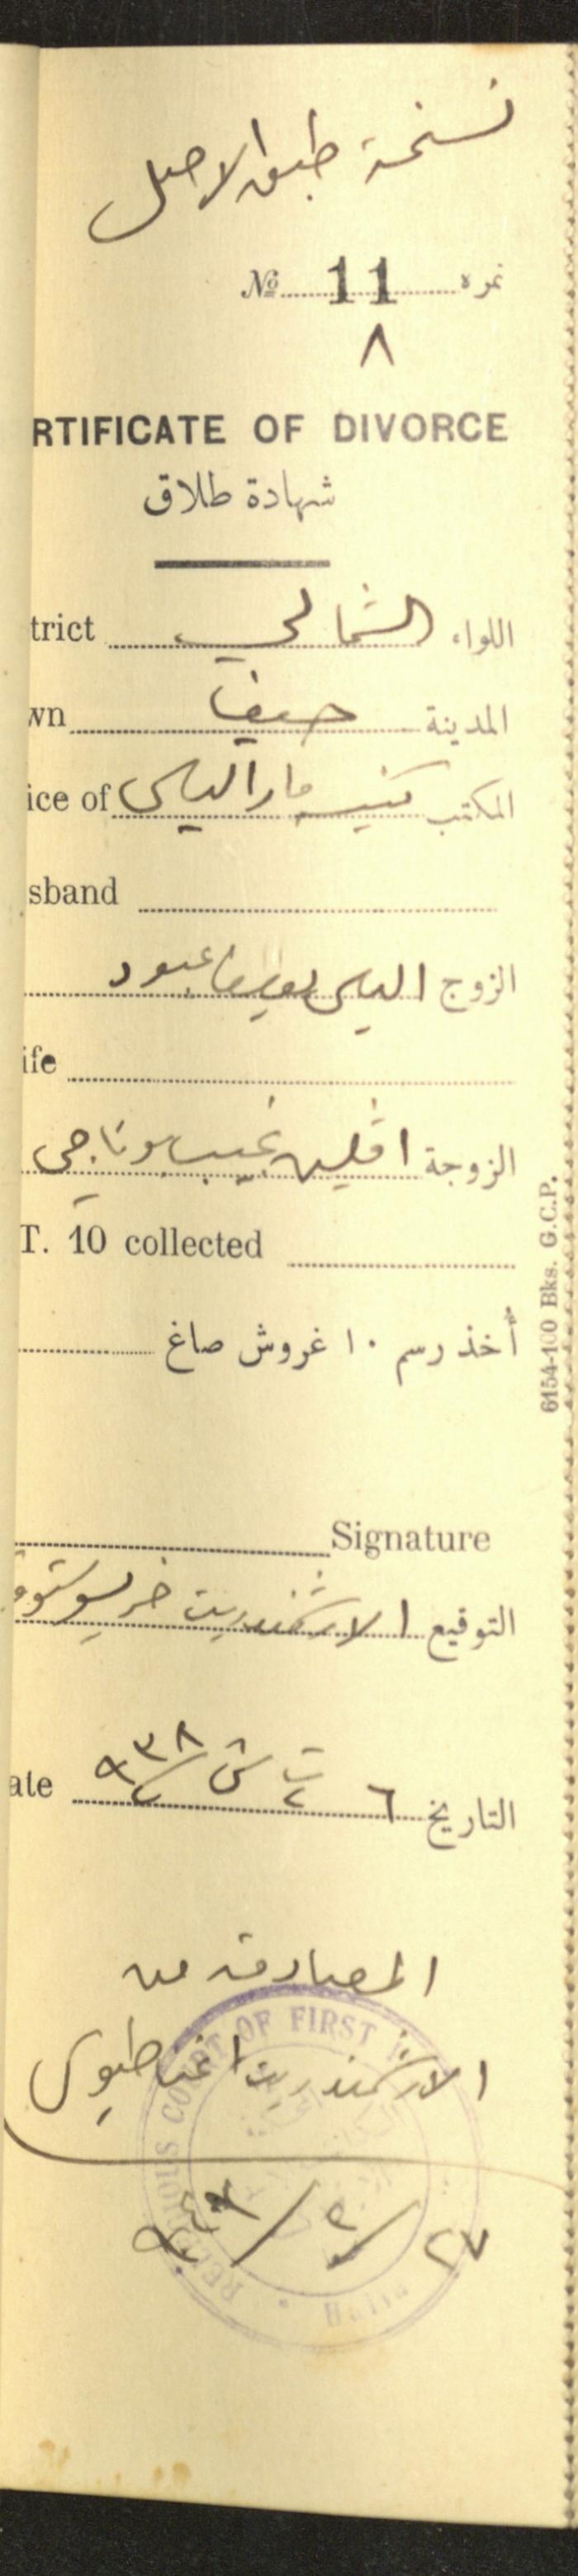 نسخة طبق الاصل
№ 11 نمره
٨
RTIFICATE OF DIVORCE
شهادة طلاق
trict الشمالي اللواء
wn حيفا المدينة
ice of كنيسة مار الياس المكتب
sband
الزوج الياس عبود
ife
الزوجة افلين نجيب
T. 10 collected
أخذ رسم ١٠ غروش صاغ
6154-100 Bks. G.C.P.
Signature
التوقيع الارشمندريت خريستوفو
ate ٦ ت٢ ش ٩٣٨ التاريخ
المصادقه من
الارشمندريت اغناطيوس
COURT OF FIRST
RELIGIOUS
Haifa
٢٧